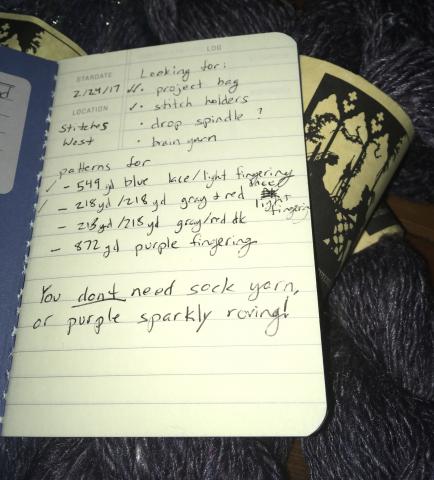 LOG
STARDATE
2/24/17
LOCATION
Stitches
West
Looking for:
✓✓. project bag
✓. stitch holders
· drop spindle ?
· brain yarn
patterns for
✓ - 549 yd blue lace/light fingering
✓ - 218 yd/218 yd gray + red lace/
light
fingering
- 213 yd/218 yd gray/red dk
- 872 yd purple fingering
You don't need sock yarn,
or purple sparkly roving!